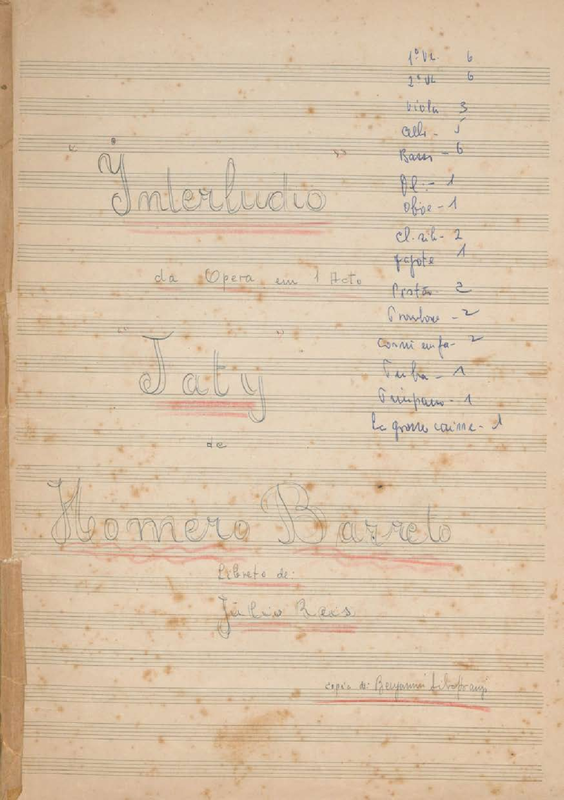 1º Vl. 6
2º Vl. 6
Viola 3
Celli - 5
Bassi - 6
Fl. - 1
Oboe - 1
Cl. sib - 2
Fagote 1
Pistão 2
Trombone - 2
Corni em fa - 2
Tuba - 1
Timpano - 1
La grosse caisse - 1
"Interludio"
da Opera em 1 Acto
"Jaty"
de
Homero Barreto
Libreto de:
Júlio Reis
copia de: Benjamin